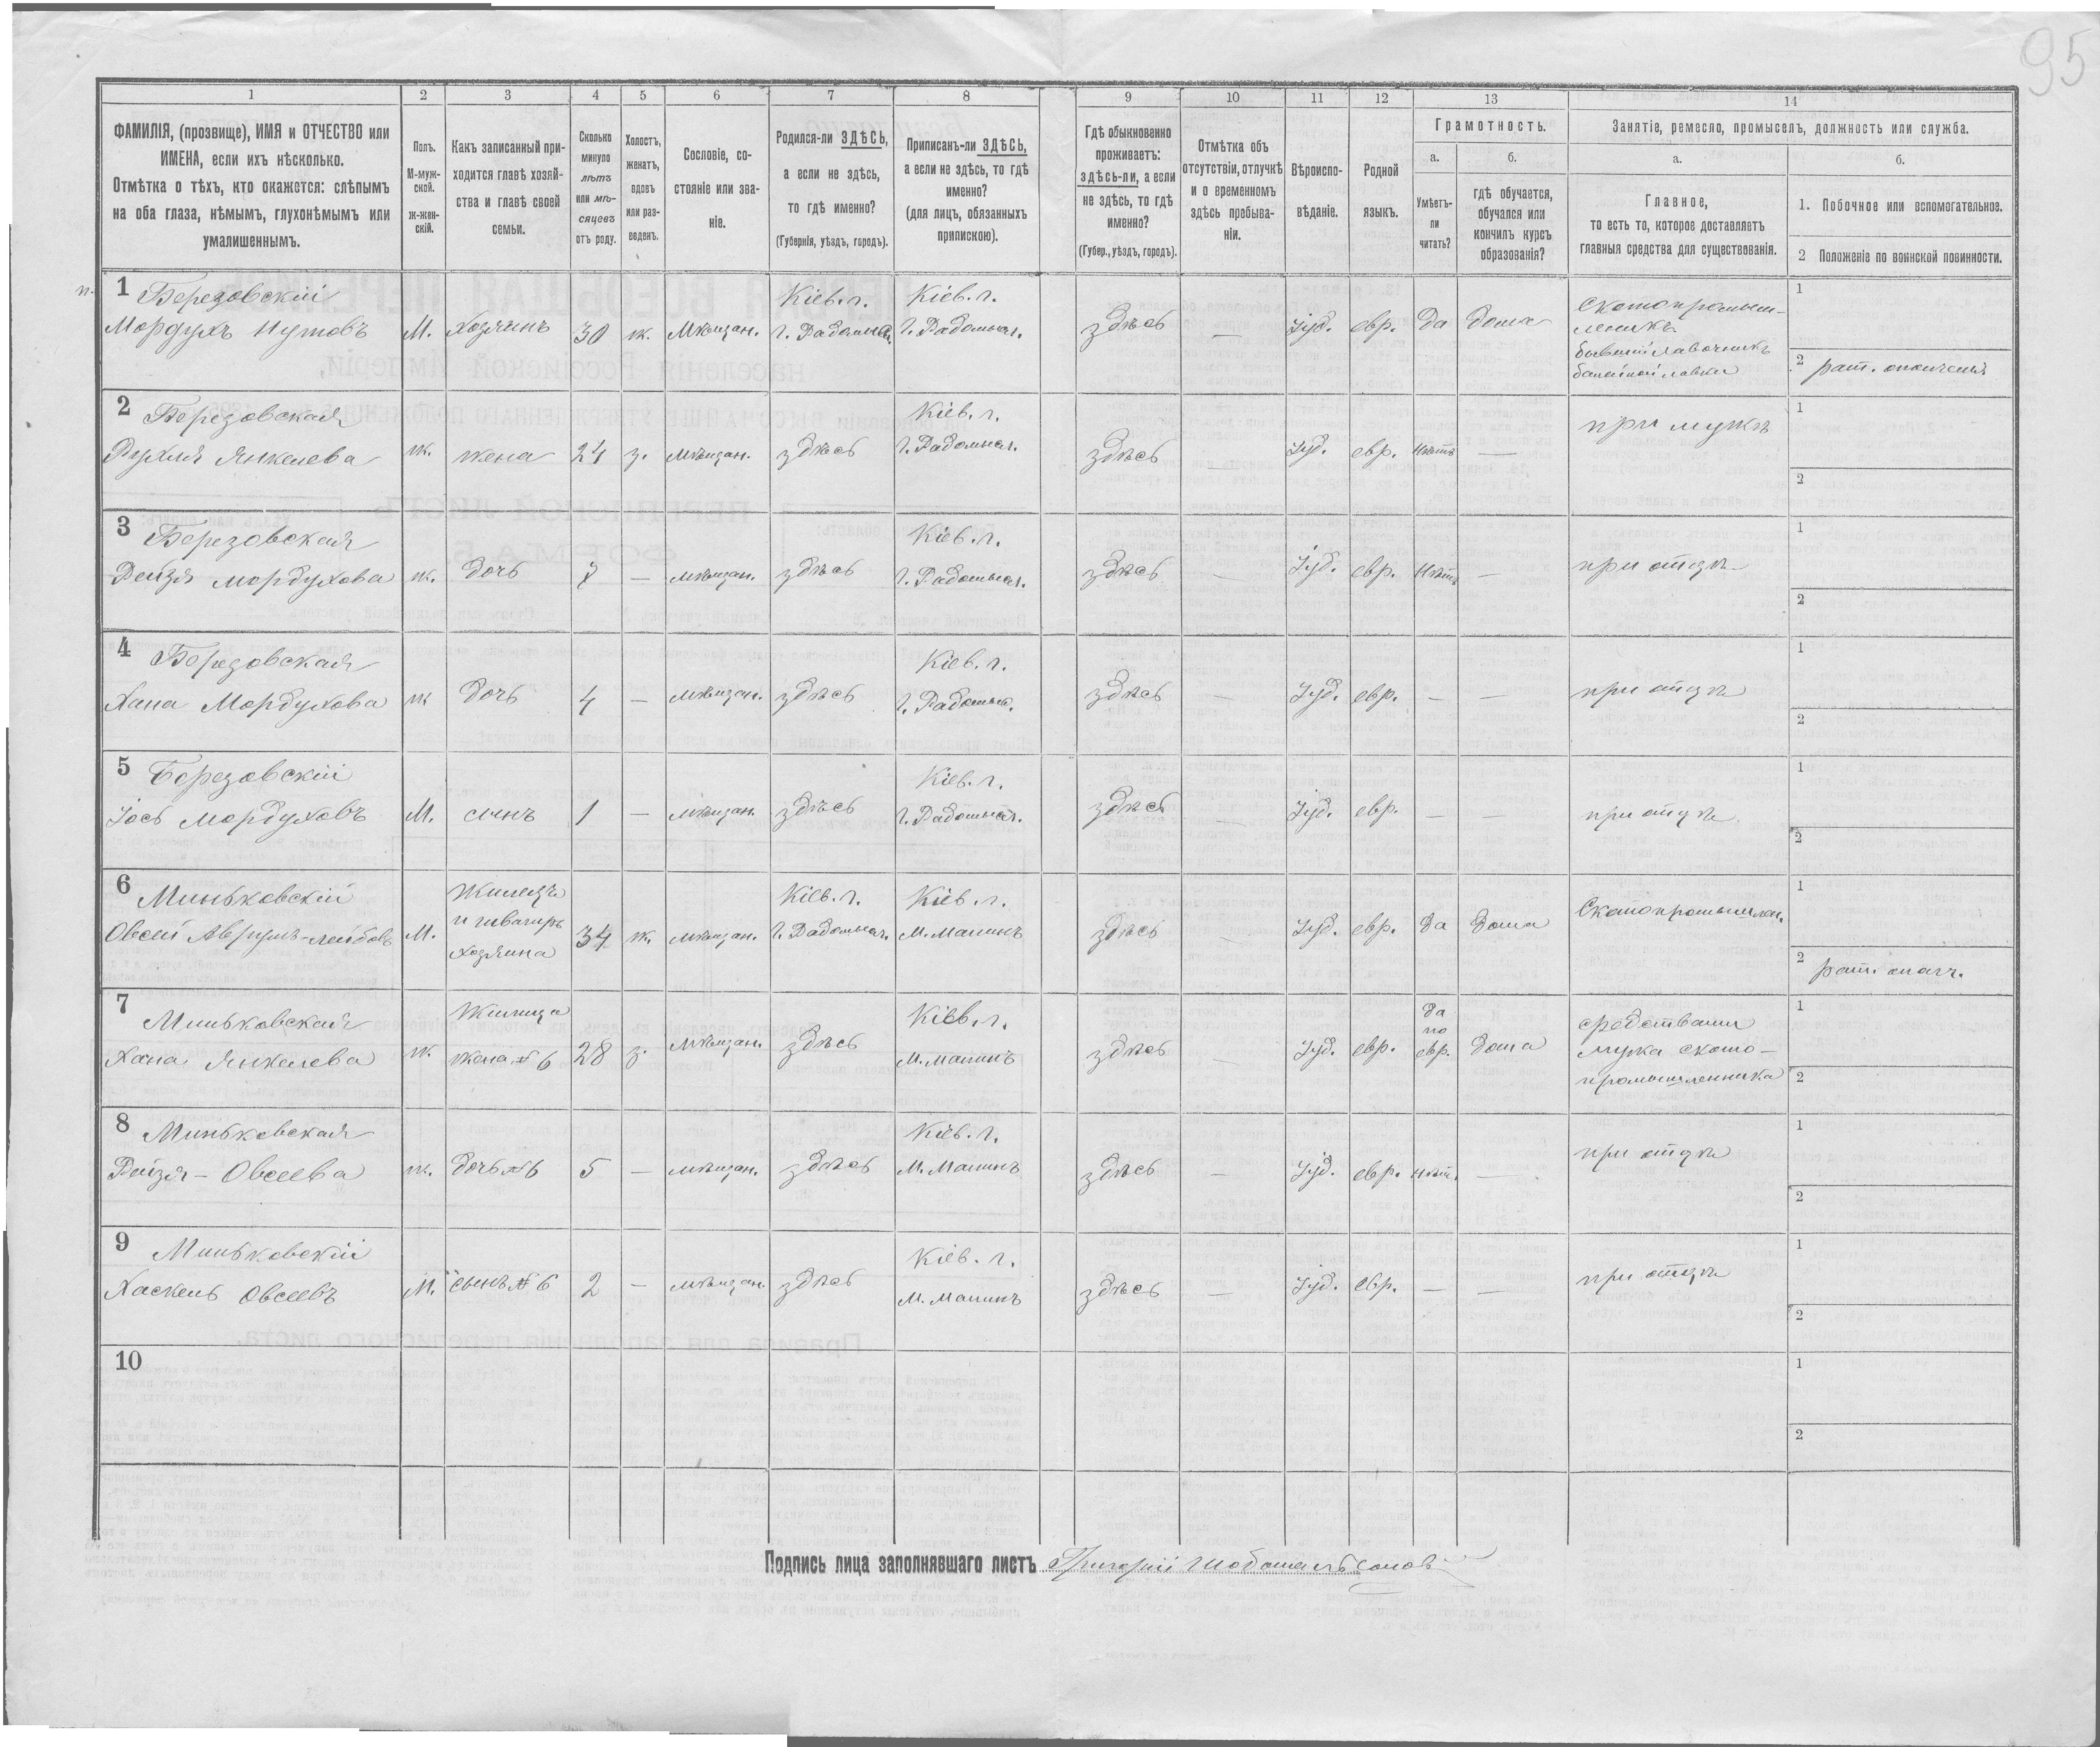 95
1 2 3 4 5 6 7 8 9 10 11 12 13 14
ФАМИЛІЯ, (прозвище), ИМЯ и ОТЧЕСТВО или
ИМЕНА, если ихъ нѣсколько.
Отмѣтка о тѣхъ, кто окажется: слѣпымъ
на оба глаза, нѣмымъ, глухонѣмымъ или
умалишеннымъ.
Полъ.
М-муж-
ской.
ж-жен-
скій.
Какъ записанный при-
ходится главѣ хозяй-
ства и главѣ своей
семьи.
Сколько
минуло
лѣтъ
или мѣ-
сяцевъ
отъ роду.
Холостъ,
женатъ,
вдовъ
или раз-
веденъ.
Сословіе, со-
стояніе или зва-
ніе.
Родился-ли ЗДѢСЬ,
а если не здѣсь,
то гдѣ именно?
(Губернія, уѣздъ, городъ).
Приписанъ-ли ЗДѢСЬ,
а если не здѣсь, то гдѣ
именно?
(для лицъ, обязанныхъ
припискою).
Гдѣ обыкновенно
проживаетъ:
здѣсь-ли, а если
не здѣсь, то гдѣ
именно?
(Губер., уѣздъ, городъ).
Отмѣтка объ
отсутствіи, отлучкѣ
и о временномъ
здѣсь пребыва-
ніи.
Вѣроиспо-
вѣданіе.
Родной
языкъ.
Грамотность.
а.
Умѣетъ-
ли
читать?
б.
гдѣ обучается,
обучался или
кончилъ курсъ
образованія?
Занятіе, ремесло, промыселъ, должность или служба.
а.
Главное,
то есть то, которое доставляетъ
главныя средства для существованія.
б.
1. Побочное или вспомогательное.
2 Положеніе по воинской повинности.
1 Березовскій Кіев. г. Кіев. г. Скотопромыш- 1
Мордухъ Нутовъ М. Хозяинъ 30 ж. Мѣщан. г. Радомысл. г. Радомысл. здѣсь — Іуд. евр. да дома ленникъ
бывшій лавочникъ
бакалейной лавки 2 рат. ополченія
2 Березовская Кіев. г. при мужѣ 1
Рухля Янкелева ж. жена 24 з. мѣщан. здѣсь г. Радомысл. здѣсь Іуд. евр. нѣтъ — 2
3 Березовская Кіев. г. 1
Рейзя Мордухова ж. дочь 7 — мѣщан. здѣсь г. Радомысл. здѣсь — Іуд. евр. нѣтъ — при отцѣ 2
4 Березовская Кіев. г. 1
Хана Мордухова ж дочь 4 — мѣщан. здѣсь г. Радомысл. здѣсь — Іуд. евр. — — при отцѣ 2
5 Березовскій Кіев. г. 1
Іось Мордуховъ М. сынъ 1 — мѣщан. здѣсь г. Радомысл. здѣсь — Іуд. евр. — — при отцѣ 2
6 Миньковскій Жилецъ Кіев. г. Кіев. г. Скотопромышлен. 1
Овсей Аврумъ-Лейбовъ М. и шваґеръ 34 ж. мѣщан. г. Радомысл. м. Малинъ здѣсь — Іуд. евр. да дома
хозяина 2 рат.ополч.
7 Миньковская Жилица Кіев. г. да средствами 1
Хана Янкелева ж. жена № 6 28 з. мѣщан. здѣсь м. Малинъ здѣсь Іуд. евр. по евр. дома мужа ското-
промышленника 2
8 Миньковская Кіев. г. 1
Рейзя-Овсеева ж. дочь № 6 5 — мѣщан. здѣсь м. Малинъ здѣсь — Іуд. евр. нѣт. — при отцѣ 2
9 Миньковскій Кіев. г. 1
Хаскель Овсеевъ М. сынъ № 6 2 — мѣщан. здѣсь м. Малинъ здѣсь — Іуд. евр. — — при отцѣ 2
10 1
2
Подпись лица заполнявшаго листъ Григорій